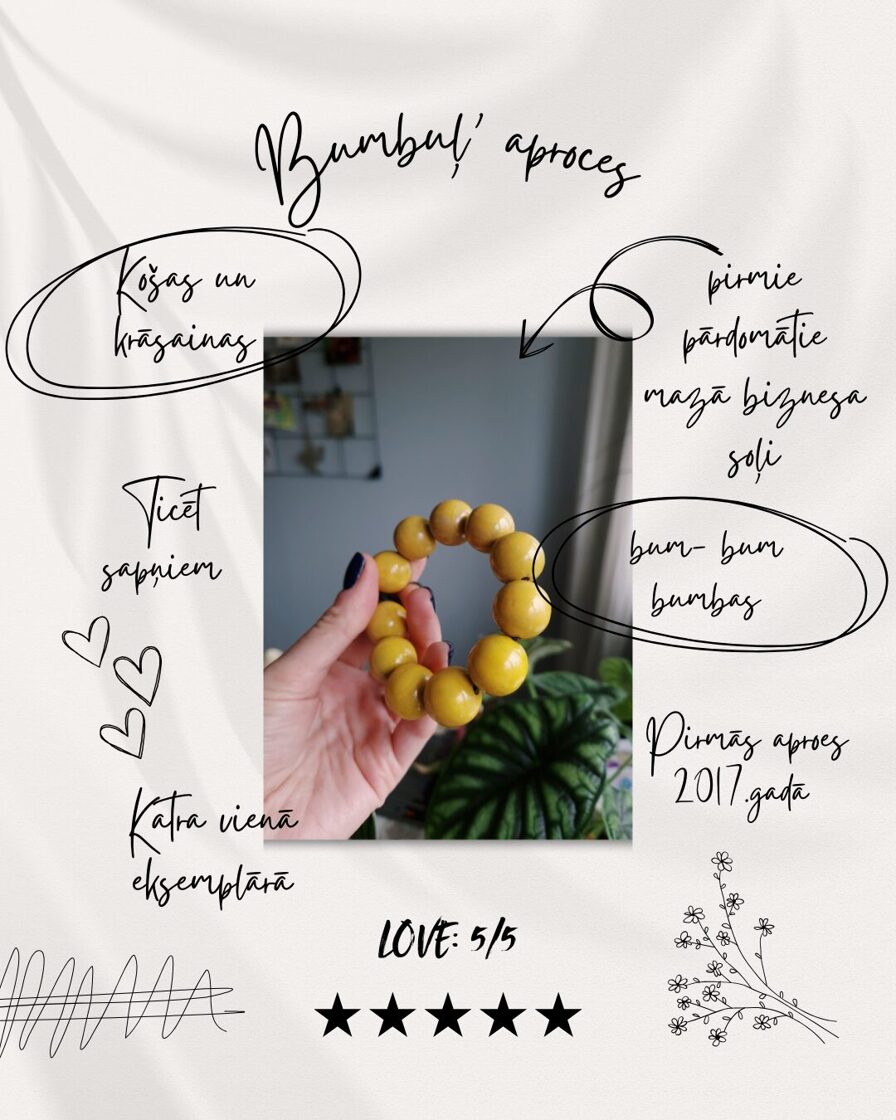 Bumbuļ' aproces
Košas un
krāsainas
pirmie
pārdomātie
mazā biznesa
soļi
Ticēt
sapņiem
bum- bum
bumbas
Pirmās aproes
2017.gadā
Katra vienā
eksemplārā
LOVE: 5/5